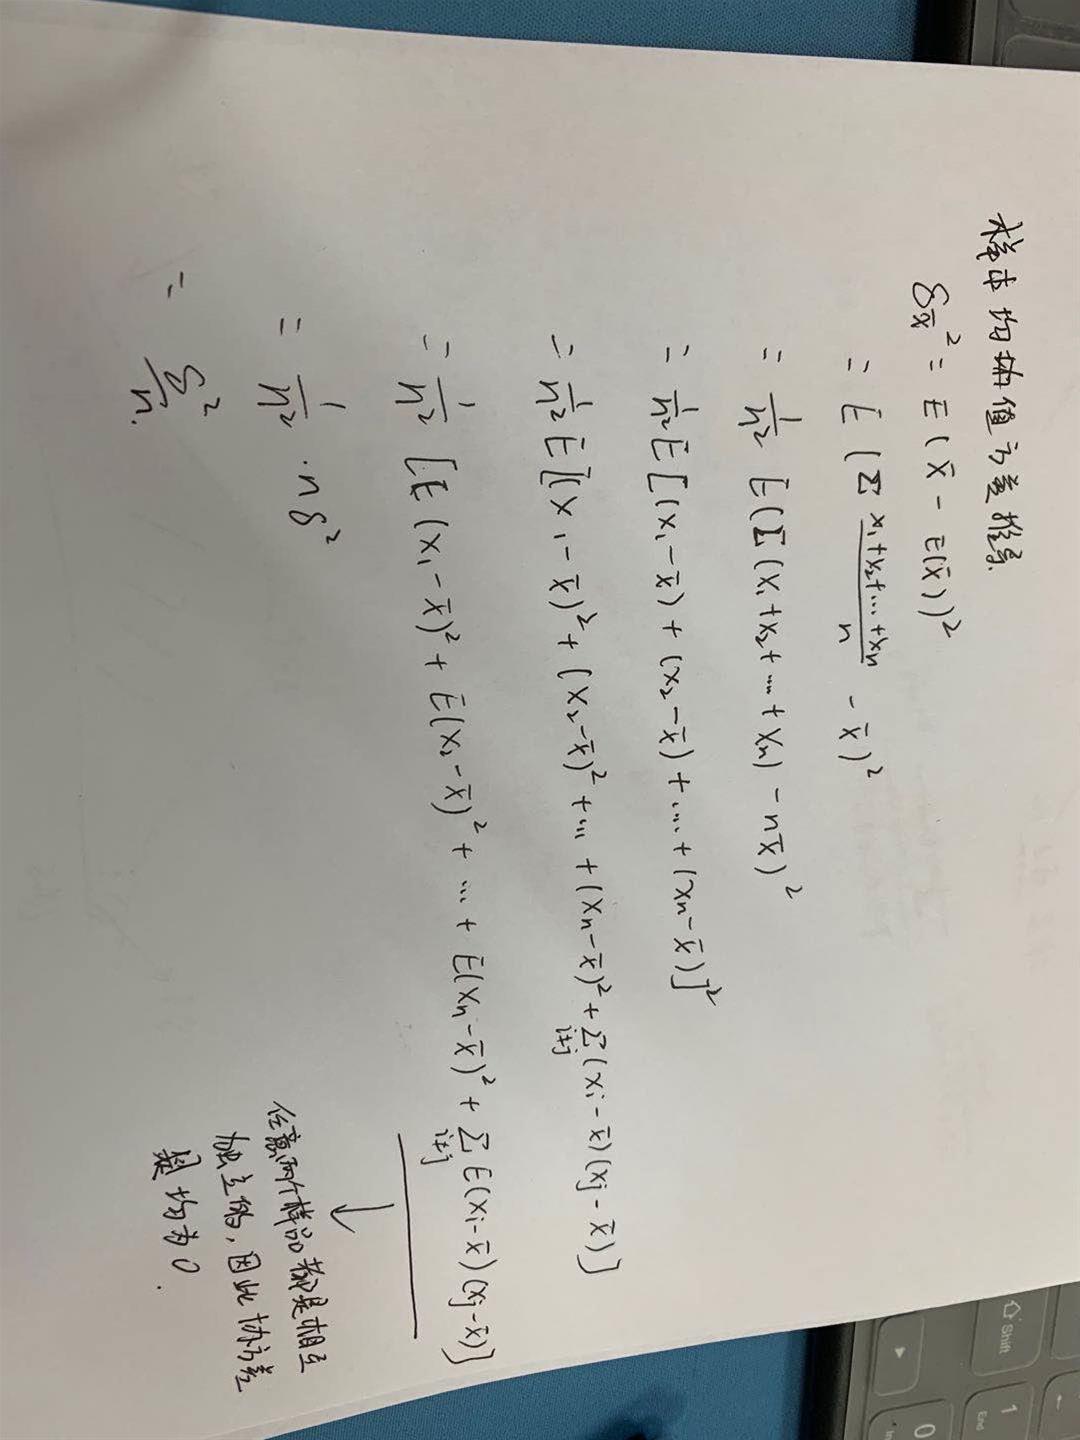 样本均值方差推导
δx̄² = E(x̄ - E(x̄))²
= E(Σ (x₁+x₂+...+xₙ)/n - x̄)²
= 1/n² E(Σ(x₁+x₂+...+xₙ) - nx̄)²
= 1/n² E[(x₁-x̄)+(x₂-x̄)+...+(xₙ-x̄)]²
= 1/n² E[(x₁-x̄)²+(x₂-x̄)²+...+(xₙ-x̄)²+Σ i≠j (xi-x̄)(xj-x̄)]
= 1/n² [E(x₁-x̄)²+E(x₂-x̄)²+...+E(xₙ-x̄)²+Σ i≠j E(xi-x̄)(xj-x̄)]
= 1/n² · nδ²
= δ²/n.
↓
任意两个样品都是相互
独立的,因此协方差
均为0.
⇧ Shift
1
End
0